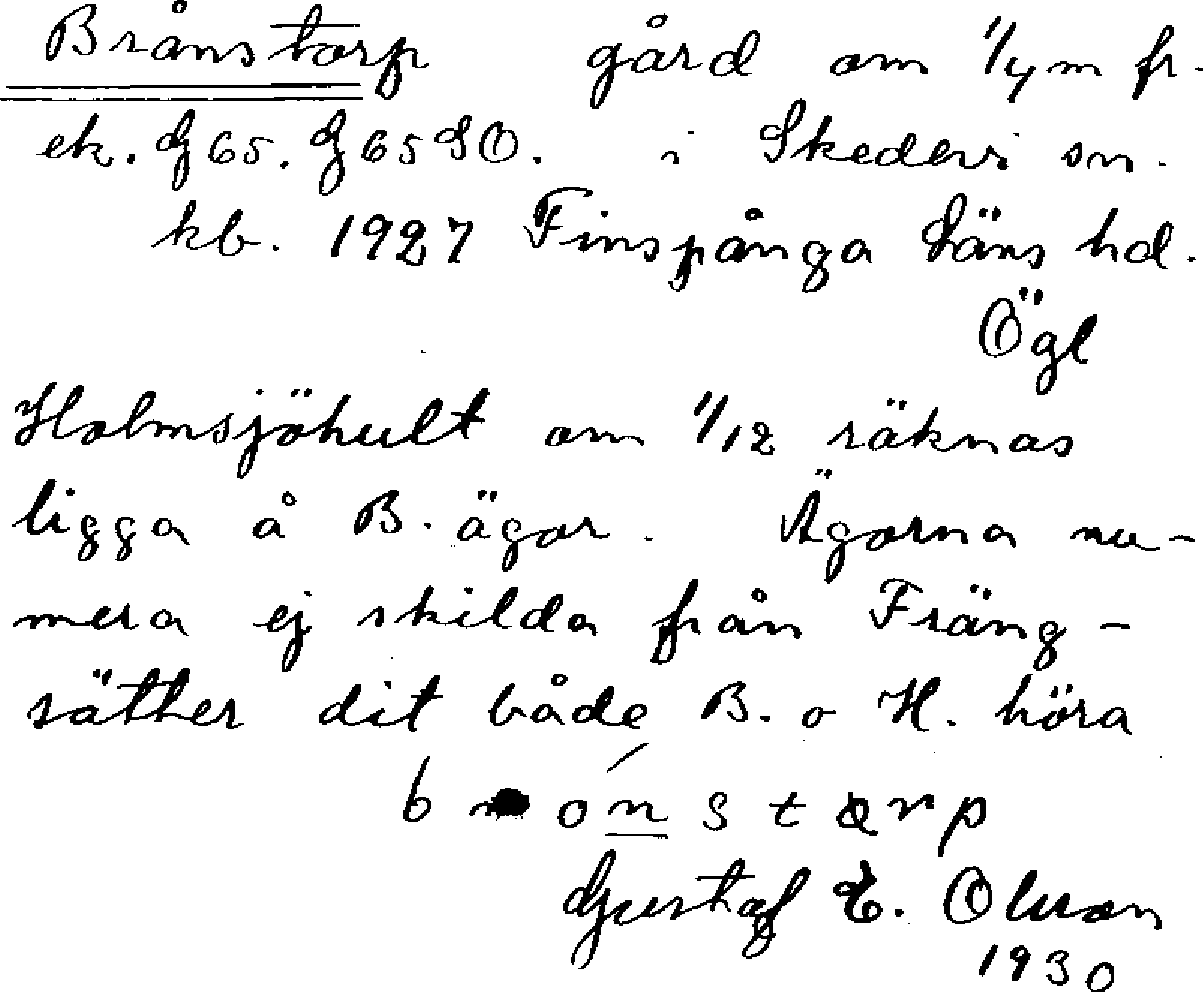 Brånstorp gård om 1/4 m fr.
ek. G65. G65SO. i Skedevi sn.
kb. 1927 Finspånga Läns hd.
Ögl
Holmsjöhult om 1/12 räknas
ligga å B. ägor. Ägorna nu-
mera ej skilda från Fräng-
sätter dit både B. o H. höra
br ónstorp
Gustaf E. Olson
1930